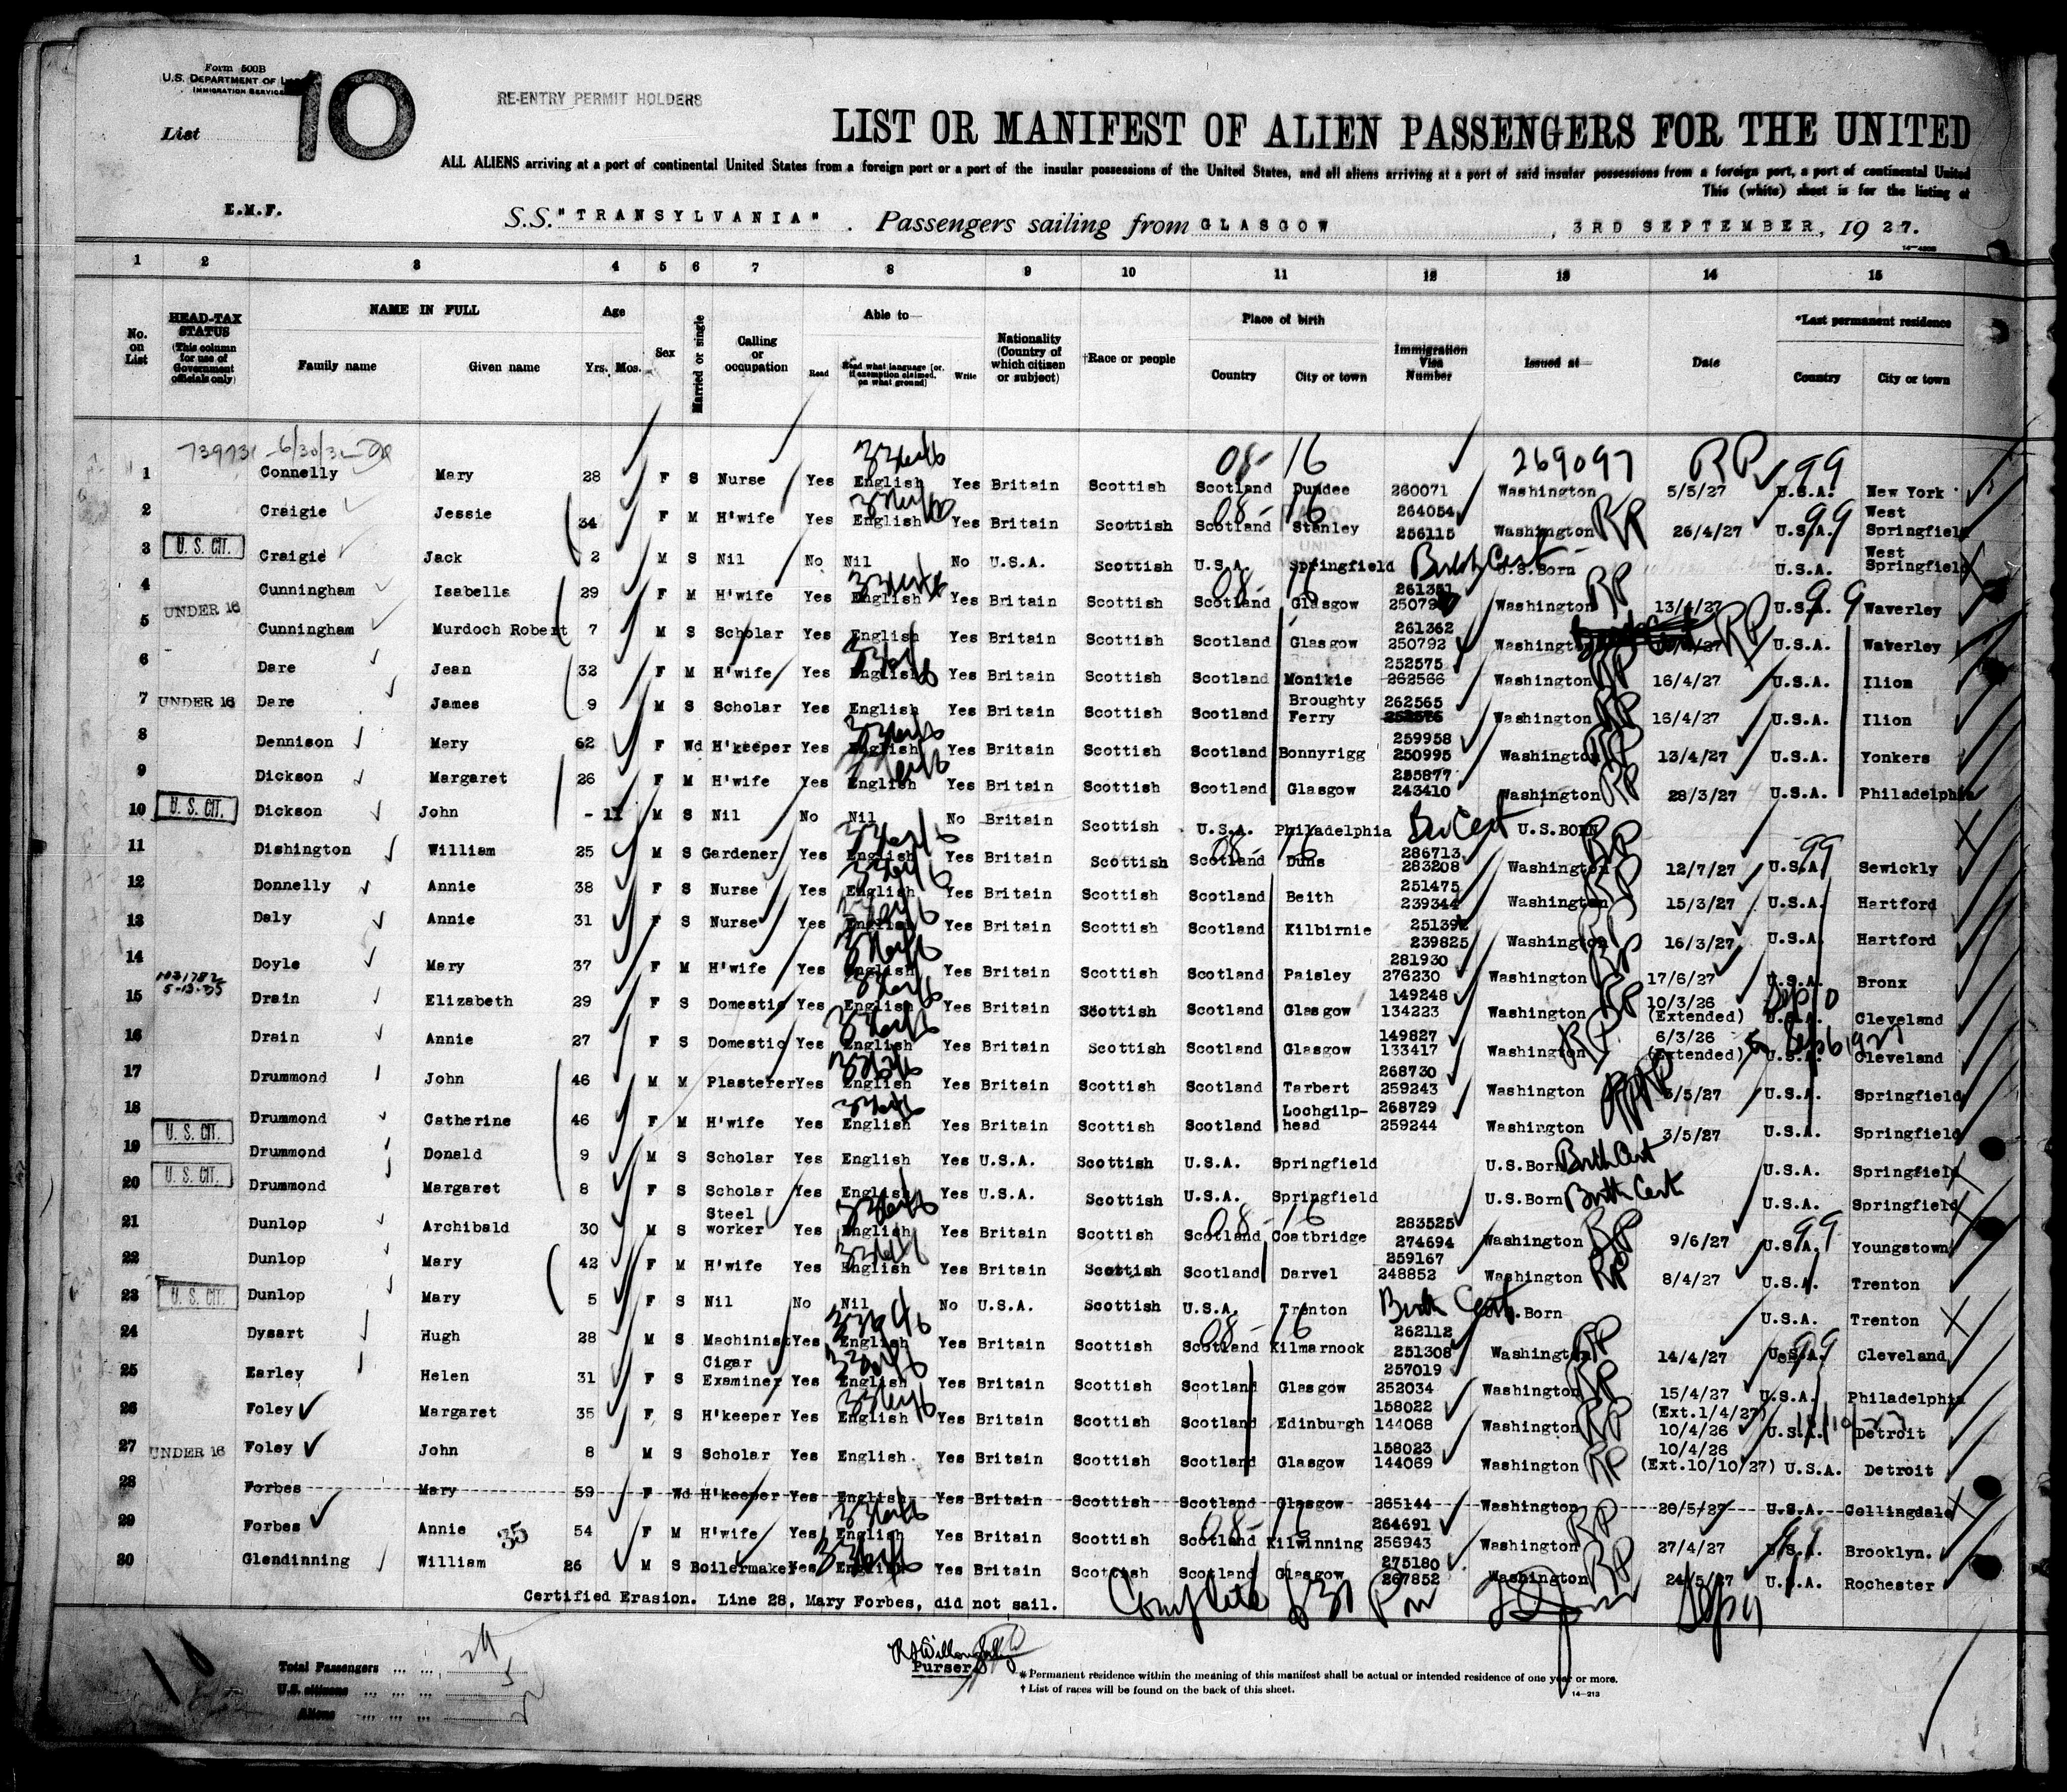 Form 500B
U.S. DEPARTMENT OF
IMMIGRATION SERVICE
10
List
RE-ENTRY PERMIT HOLDERS
LIST OR MANIFEST OF ALIEN PASSENGERS FOR THE UNITED
ALL ALIENS arriving at a port of continental United States from a foreign port or a port of the insular possessions of the United States, and all aliens arriving at a port of said insular possessions from a foreign port, a port of continental United
This (white) sheet is for the listing of
E.M.F.
S.S. "TRANSYLVANIA". Passengers sailing from GLASGOW, 3RD SEPTEMBER, 1927.
1 2 3 4 5 6 7 8 9 10 11 12 13 14 15
No. on List
HEAD-TAX STATUS (This column for use of Government officials only)
NAME IN FULL
Family name Given name
Age
Yrs. Mos.
Sex
Married or single
Calling or occupation
Able to—
Read Read what language [or, if exemption claimed, on what ground] Write
Nationality (Country of which citizen or subject)
†Race or people
Place of birth
Country City or town
Immigration Visa Number
Issued at—
Date
*Last permanent residence
Country City or town
269097 RP
1 Connelly Mary 28 F S Nurse Yes English Yes Britain Scottish Scotland Dundee 260071 Washington 5/5/27 U.S.A. New York
2 Craigie Jessie 34 F M H'wife Yes English Yes Britain Scottish Scotland Stanley 264054 256115 Washington RP 26/4/27 U.S.A. West Springfield
3 U. S. CIT. Craigie Jack 2 M S Nil No Nil No U.S.A. Scottish U.S.A. Springfield Birth Cert U.S.Born U.S.A. West Springfield
4 Cunningham Isabella 29 F M H'wife Yes English Yes Britain Scottish Scotland Glasgow Washington RP 13/4/27 U.S.A. Waverley
5 UNDER 16 Cunningham Murdoch Robert 7 M S Scholar Yes English Yes Britain Scottish Scotland Glasgow 261362 250792 Washington RP U.S.A. Waverley
6 Dare Jean 32 F M H'wife Yes English Yes Britain Scottish Scotland Monikie 252575 262566 Washington RP 16/4/27 U.S.A. Ilion
7 UNDER 16 Dare James 9 M S Scholar Yes English Yes Britain Scottish Scotland Broughty Ferry 262565 Washington RP 16/4/27 U.S.A. Ilion
8 Dennison Mary 62 F Wd H'keeper Yes English Yes Britain Scottish Scotland Bonnyrigg 259958 250995 Washington RP 13/4/27 U.S.A. Yonkers
9 Dickson Margaret 26 F M H'wife Yes English Yes Britain Scottish Scotland Glasgow 243410 Washington RP 28/3/27 U.S.A. Philadelphia
10 U. S. CIT. Dickson John - 11 M S Nil No Nil No Britain Scottish U.S.A. Philadelphia Cert U.S.BORN
11 Dishington William 25 M S Gardener Yes English Yes Britain Scottish Scotland Duns 286713 283208 Washington RP 12/7/27 U.S.A. Sewickly
12 Donnelly Annie 38 F S Nurse Yes English Yes Britain Scottish Scotland Beith 251475 239344 Washington RP 15/3/27 U.S.A. Hartford
13 Daly Annie 31 F S Nurse Yes English Yes Britain Scottish Scotland Kilbirnie 251392 239825 Washington RP 16/3/27 U.S.A. Hartford
14 Doyle Mary 37 F M H'wife Yes English Yes Britain Scottish Scotland Paisley 281930 276230 Washington RP 17/6/27 U.S.A. Bronx
15 Drain Elizabeth 29 F S Domestic Yes English Yes Britain Scottish Scotland Glasgow 149248 134223 Washington RP 10/3/26 (Extended) U.S.A. Cleveland
16 Drain Annie 27 F S Domestic Yes English Yes Britain Scottish Scotland Glasgow 149827 133417 Washington RP 6/3/26 (Extended) U.S.A. Cleveland
17 Drummond John 46 M M Plasterer Yes English Yes Britain Scottish Scotland Tarbert 268730 259243 Washington RP U.S.A. Springfield
18 Drummond Catherine 46 F M H'wife Yes English Yes Britain Scottish Scotland Lochgilp-head 268729 259244 Washington 3/5/27 U.S.A. Springfield
19 U. S. CIT. Drummond Donald 9 M S Scholar Yes English Yes U.S.A. Scottish U.S.A. Springfield U.S.Born Birth Cert U.S.A. Springfield
20 U. S. CIT. Drummond Margaret 8 F S Scholar Yes English Yes U.S.A. Scottish U.S.A. Springfield U.S.Born Birth Cert U.S.A. Springfield
21 Dunlop Archibald 30 M S Steel worker Yes English Yes Britain Scottish Scotland Coatbridge 283525 274694 Washington RP 9/6/27 U.S.A. Youngstown
22 Dunlop Mary 42 F M H'wife Yes English Yes Britain Scottish Scotland Darvel 259167 248852 Washington RP 8/4/27 U.S.A. Trenton
23 U. S. CIT. Dunlop Mary 5 F S Nil No Nil No U.S.A. Scottish U.S.A. Trenton Birth Cert U.S.Born U.S.A. Trenton
24 Dysart Hugh 28 M S Machinist Yes English Yes Britain Scottish Scotland Kilmarnock 262112 251308 Washington RP 14/4/27 U.S.A. Cleveland
25 Earley Helen 31 F S Cigar Examiner Yes English Yes Britain Scottish Scotland Glasgow 257019 252034 Washington RP 15/4/27 U.S.A. Philadelphia
26 Foley Margaret 35 F S H'keeper Yes English Yes Britain Scottish Scotland Edinburgh 158022 144068 Washington RP (Ext.1/4/27) 10/4/26 U.S.A. Detroit
27 UNDER 16 Foley John 8 M S Scholar Yes English. Yes Britain Scottish Scotland Glasgow 158023 144069 Washington RP 10/4/26 (Ext.10/10/27) U.S.A. Detroit
28 Forbes Mary 59 F Wd H'keeper Yes English Yes Britain Scottish Scotland Glasgow 265144 Washington 20/5/27 U.S.A. Collingdale
29 Forbes Annie 35 54 F M H'wife Yes English Yes Britain Scottish Scotland Kilwinning 264691 256943 Washington RP 27/4/27 U.S.A. Brooklyn.
30 Glendinning William 26 M S Boilermaker Yes English Yes Britain Scottish Scotland Glasgow 275180 267852 Washington RP 24/5/27 U.S.A. Rochester
Certified Erasion. Line 28, Mary Forbes, did not sail.
Complete
Purser
Total Passengers
U.S. citizens 5
Aliens
* Permanent residence within the meaning of this manifest shall be actual or intended residence of one year or more.
† List of races will be found on the back of this sheet.
14-213